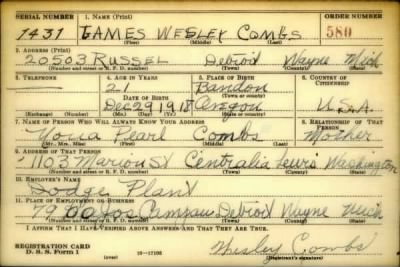 SERIAL NUMBER 1. NAME (Print) ORDER NUMBER
1431 JAMES WESLEY COMBS 580
(First) (Middle) (Last)
2. ADDRESS (Print)
20503 RUSSEL Detroid Wayne Mich
(Number and street or R. F. D. number) (Town) (County) (State)
3. TELEPHONE 4. AGE IN YEARS 5. PLACE OF BIRTH 6. COUNTRY OF CITIZENSHIP
21 Bandon
(Town or county)
DATE OF BIRTH
Dec 29 1918 Oregon U.S.A
(Exchange) (Number) (Mo.) (Day) (Yr.) (State or country)
7. NAME OF PERSON WHO WILL ALWAYS KNOW YOUR ADDRESS 8. RELATIONSHIP OF THAT PERSON
Pearl Combs Mother
(Mr., Mrs., Miss) (First) (Middle) (Last)
9. ADDRESS OF THAT PERSON
1103 Marion St Centralia Lewis Washington
(Number and street or R. F. D. number) (Town) (County) (State)
10. EMPLOYER'S NAME
Dodge Plant
11. PLACE OF EMPLOYMENT OR BUSINESS
Detroid Wayne Mich
(Number and street or R. F. D. number) (Town) (County) (State)
I AFFIRM THAT I HAVE VERIFIED ABOVE ANSWERS AND THAT THEY ARE TRUE.
REGISTRATION CARD
D. S. S. Form 1 (over) 16—17105 Wesley Combs
(Registrant's signature)